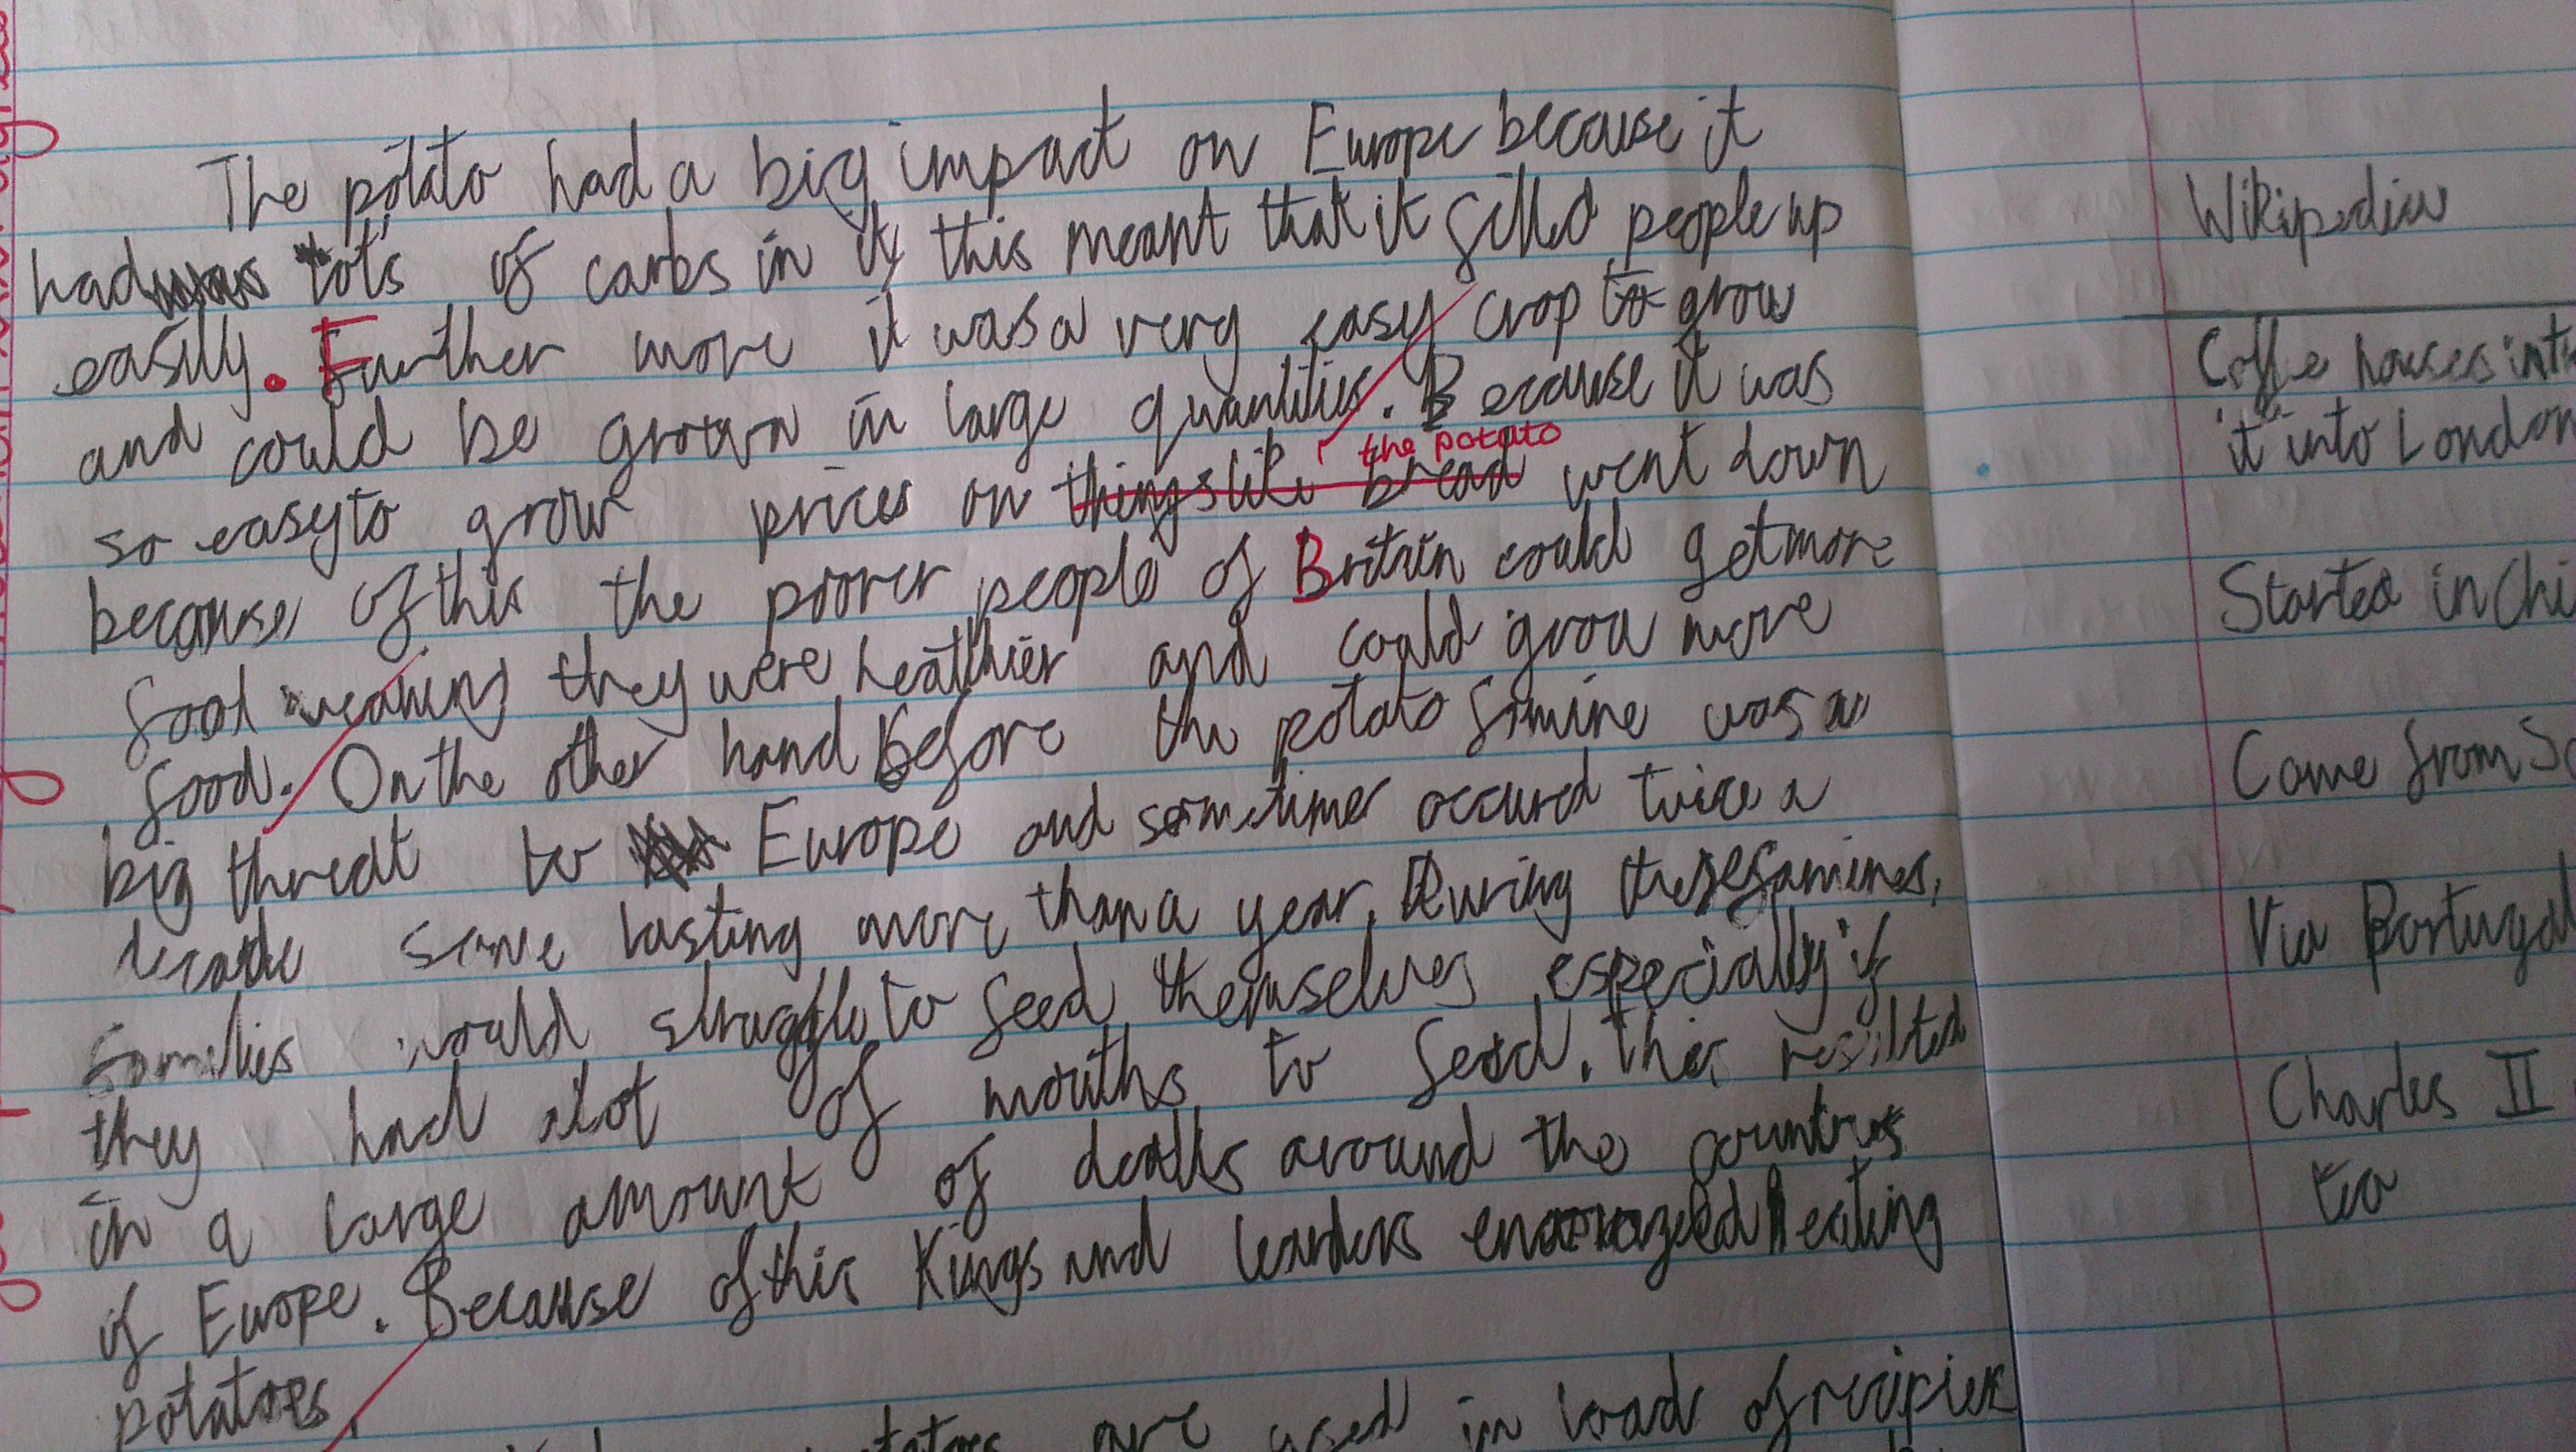 The potato had a big impact on Europe because it
had lots of carbs in it, this meant that it filled people up
easily. Further more it was a very easy crop to grow
and could be grown in large quantities. Because it was
so easy to grow prices on things like bread went down
the potato
because of this the poorer people of Britain could get more
food meaning they were healthier and could grow more
food. On the other hand Before the potato famine was a
big threat to Europe and sometimes occured twice a
decade some lasting more than a year. During these famines,
families would struggle to feed themselves especially if
they had alot of mouths to feed. this resulted
in a large amount of deaths around the countries
of Europe. Because of this Kings and leaders encouraged eating
potatoes.
are used in load of recipies
Wikipedia
Coffe houses
it into London
Started in Chi
Came from So
Via Portugal
Charles II
tea